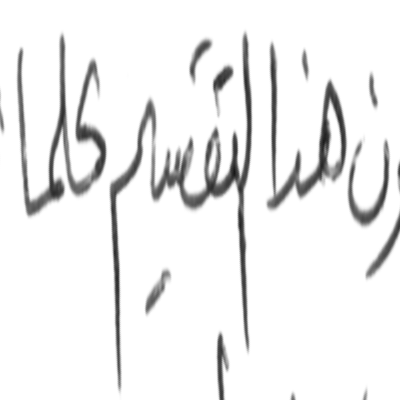 هذا التقسيم كلما